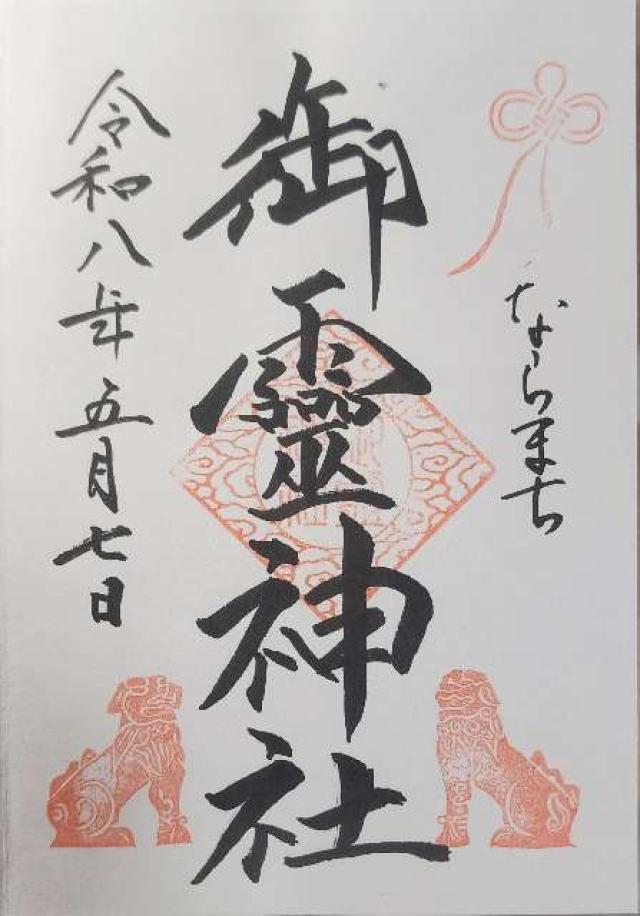 ならまち
御靈神社
令和八年五月七日